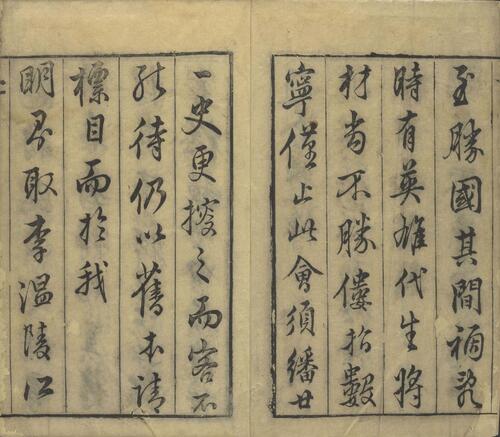 至勝國其間禍亂
時有英雄代生將
材尚不勝僂指數
寧僅止此會須繙廿
一史更搜之而客不
能待仍以舊本請
標目而於我
明另取李溫陵江